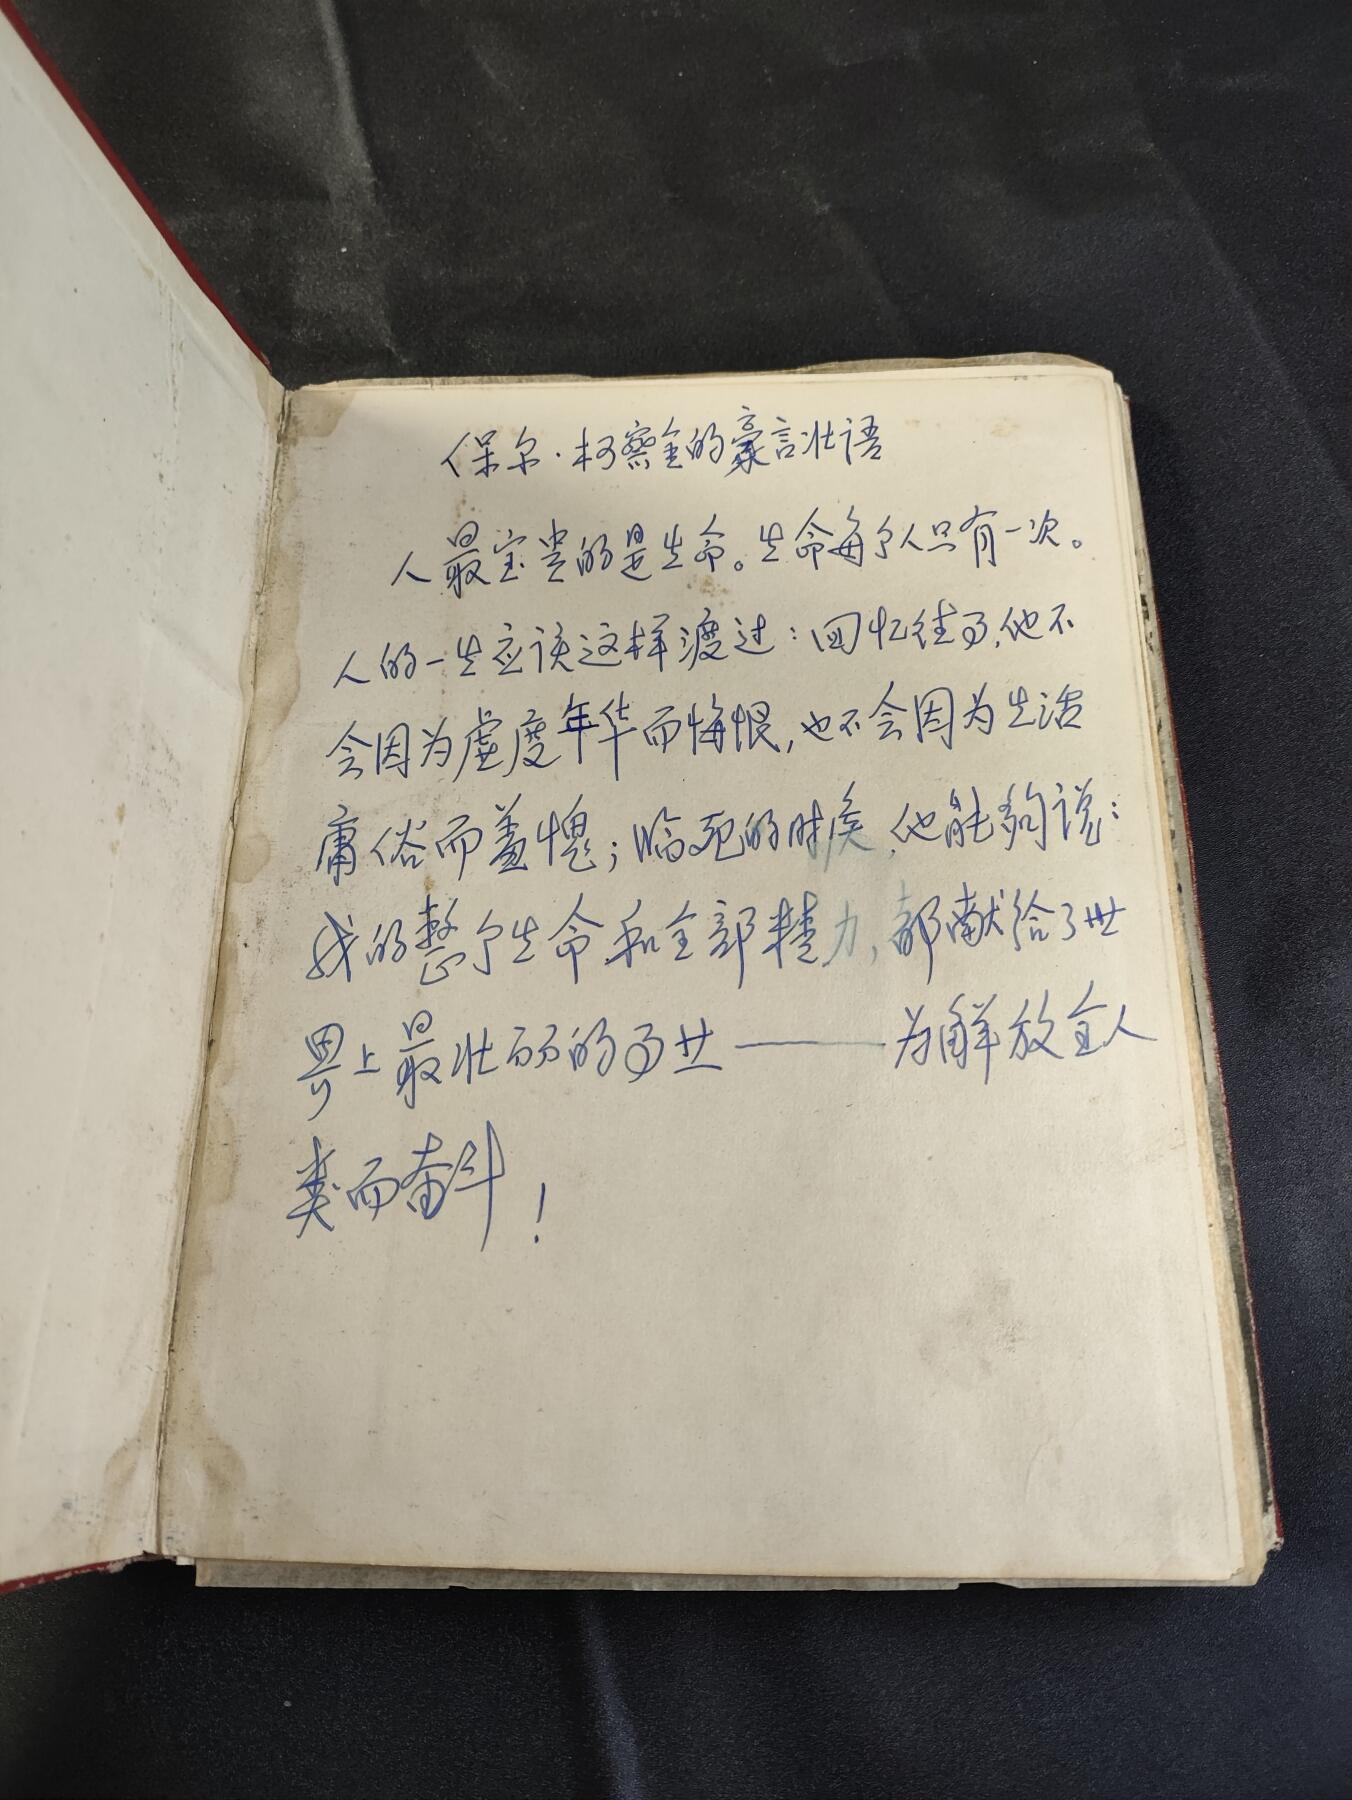 保尔·柯察金的豪言壮语
人最宝贵的是生命。生命每个人只有一次。
人的一生应该这样渡过：回忆往事，他不
会因为虚度年华而悔恨，也不会因为生活
庸俗而羞愧；临死的时候，他能夠说：
我的整个生命和全部精力，都献给了世
界上最壮丽的事业——为解放全人
类而奋斗！